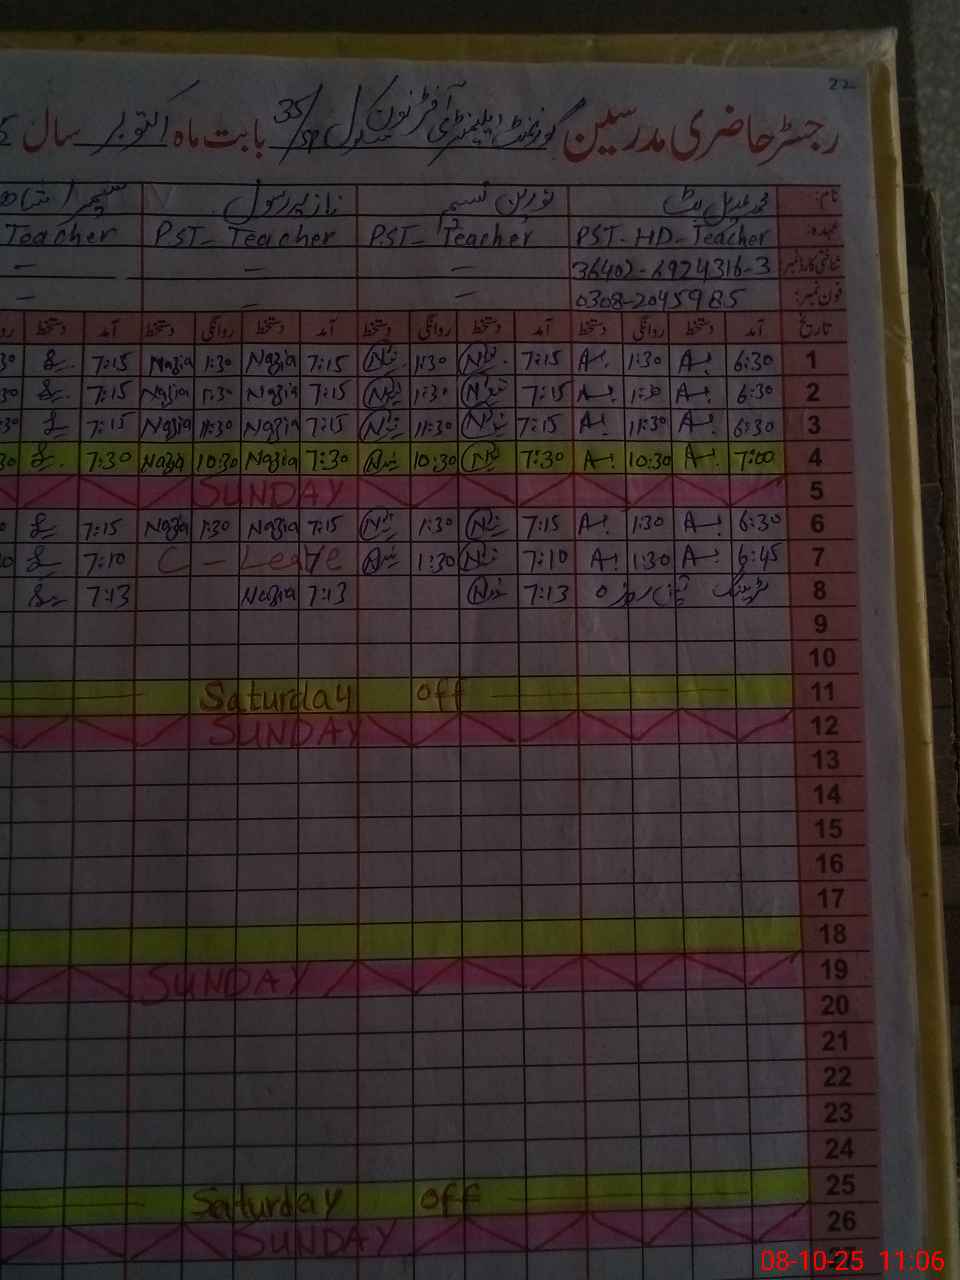 22
رجسٹر حاضری مدرسین گورنمنٹ ایلیمنٹری آفٹر نون سکول 35/SP بابت ماہ اکتوبر سال
نام: محمد عدیل بٹ نورین نسیم نازیہ رسول
عہدہ: PST-HD-Teacher PST-Teacher PST-Teacher Teacher
شناختی کارڈ نمبر 36402-6924316-3 — — —
فون نمبر: 0308-2045985 — — —
تاریخ آمد دستخط روانگی دستخط آمد دستخط روانگی دستخط آمد دستخط روانگی دستخط آمد دستخط
1 6:30 1:30 7:15 1:30 7:15 Nazia 1:30 Nazia 7:15
2 6:30 1:30 7:15 1:30 7:15 Nazia 1:30 Nazia 7:15
3 6:30 11:30 7:15 11:30 7:15 Nazia 11:30 Nazia 7:15
4 7:00 10:30 7:30 10:30 7:30 Nazia 10:30 Nazia 7:30
5 SUNDAY
6 6:30 1:30 7:15 1:30 7:15 Nazia 1:30 Nazia 7:15
7 6:45 1:30 7:10 1:30 C - Leave 7:10
8 ٹریننگ تین روزہ 7:13 7:13 Nazia 7:13
9
10
11 Saturday off
12 SUNDAY
13
14
15
16
17
18
19 SUNDAY
20
21
22
23
24
25 Saturday off
26 SUNDAY
08-10-25 11:06